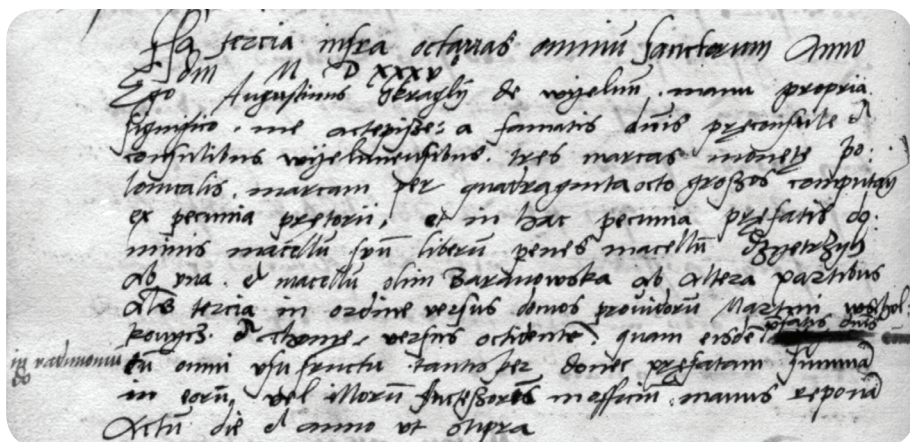 Fa tercia infra octavas omniū Sanctorum Anno
Dm̄ M D XXXV
Ego Augustinus de wyelun manu propria
significo me accepisse a famatis dn̄is pręconsule et
consulibus wyelunensibus tres marcas monetę po:
lonicalis marcam per quadraginta octo grossos computan̄
ex pecunia pretorii, et in hac pecunia pręfatis do:
minis macellū suū liberū penes macellū
ab una et macellū olim Baranowska ab altera partibus
als tercia in ordine versus domos providorū Martini
et Thome versus occidentē, quam eisdē pfatis dn̄is
in vadimoniū
do
cū omni usufructu tantisper donec pręfatam summā
in eorū vel illorū successores in officiū manus reponā
Actū die et anno ut supra